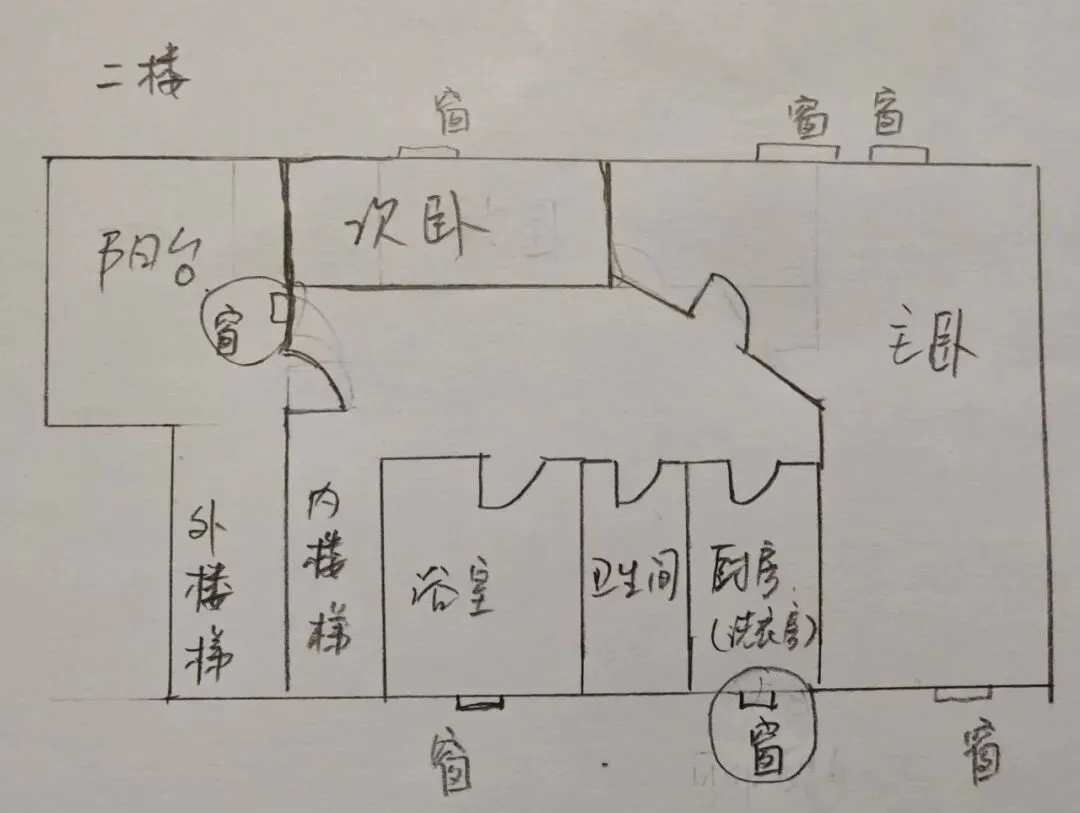 二楼
窗
窗 窗
阳台
次卧
窗
主卧
外楼梯
内楼梯
浴室
卫生间
厨房
(洗衣房)
窗
窗
窗